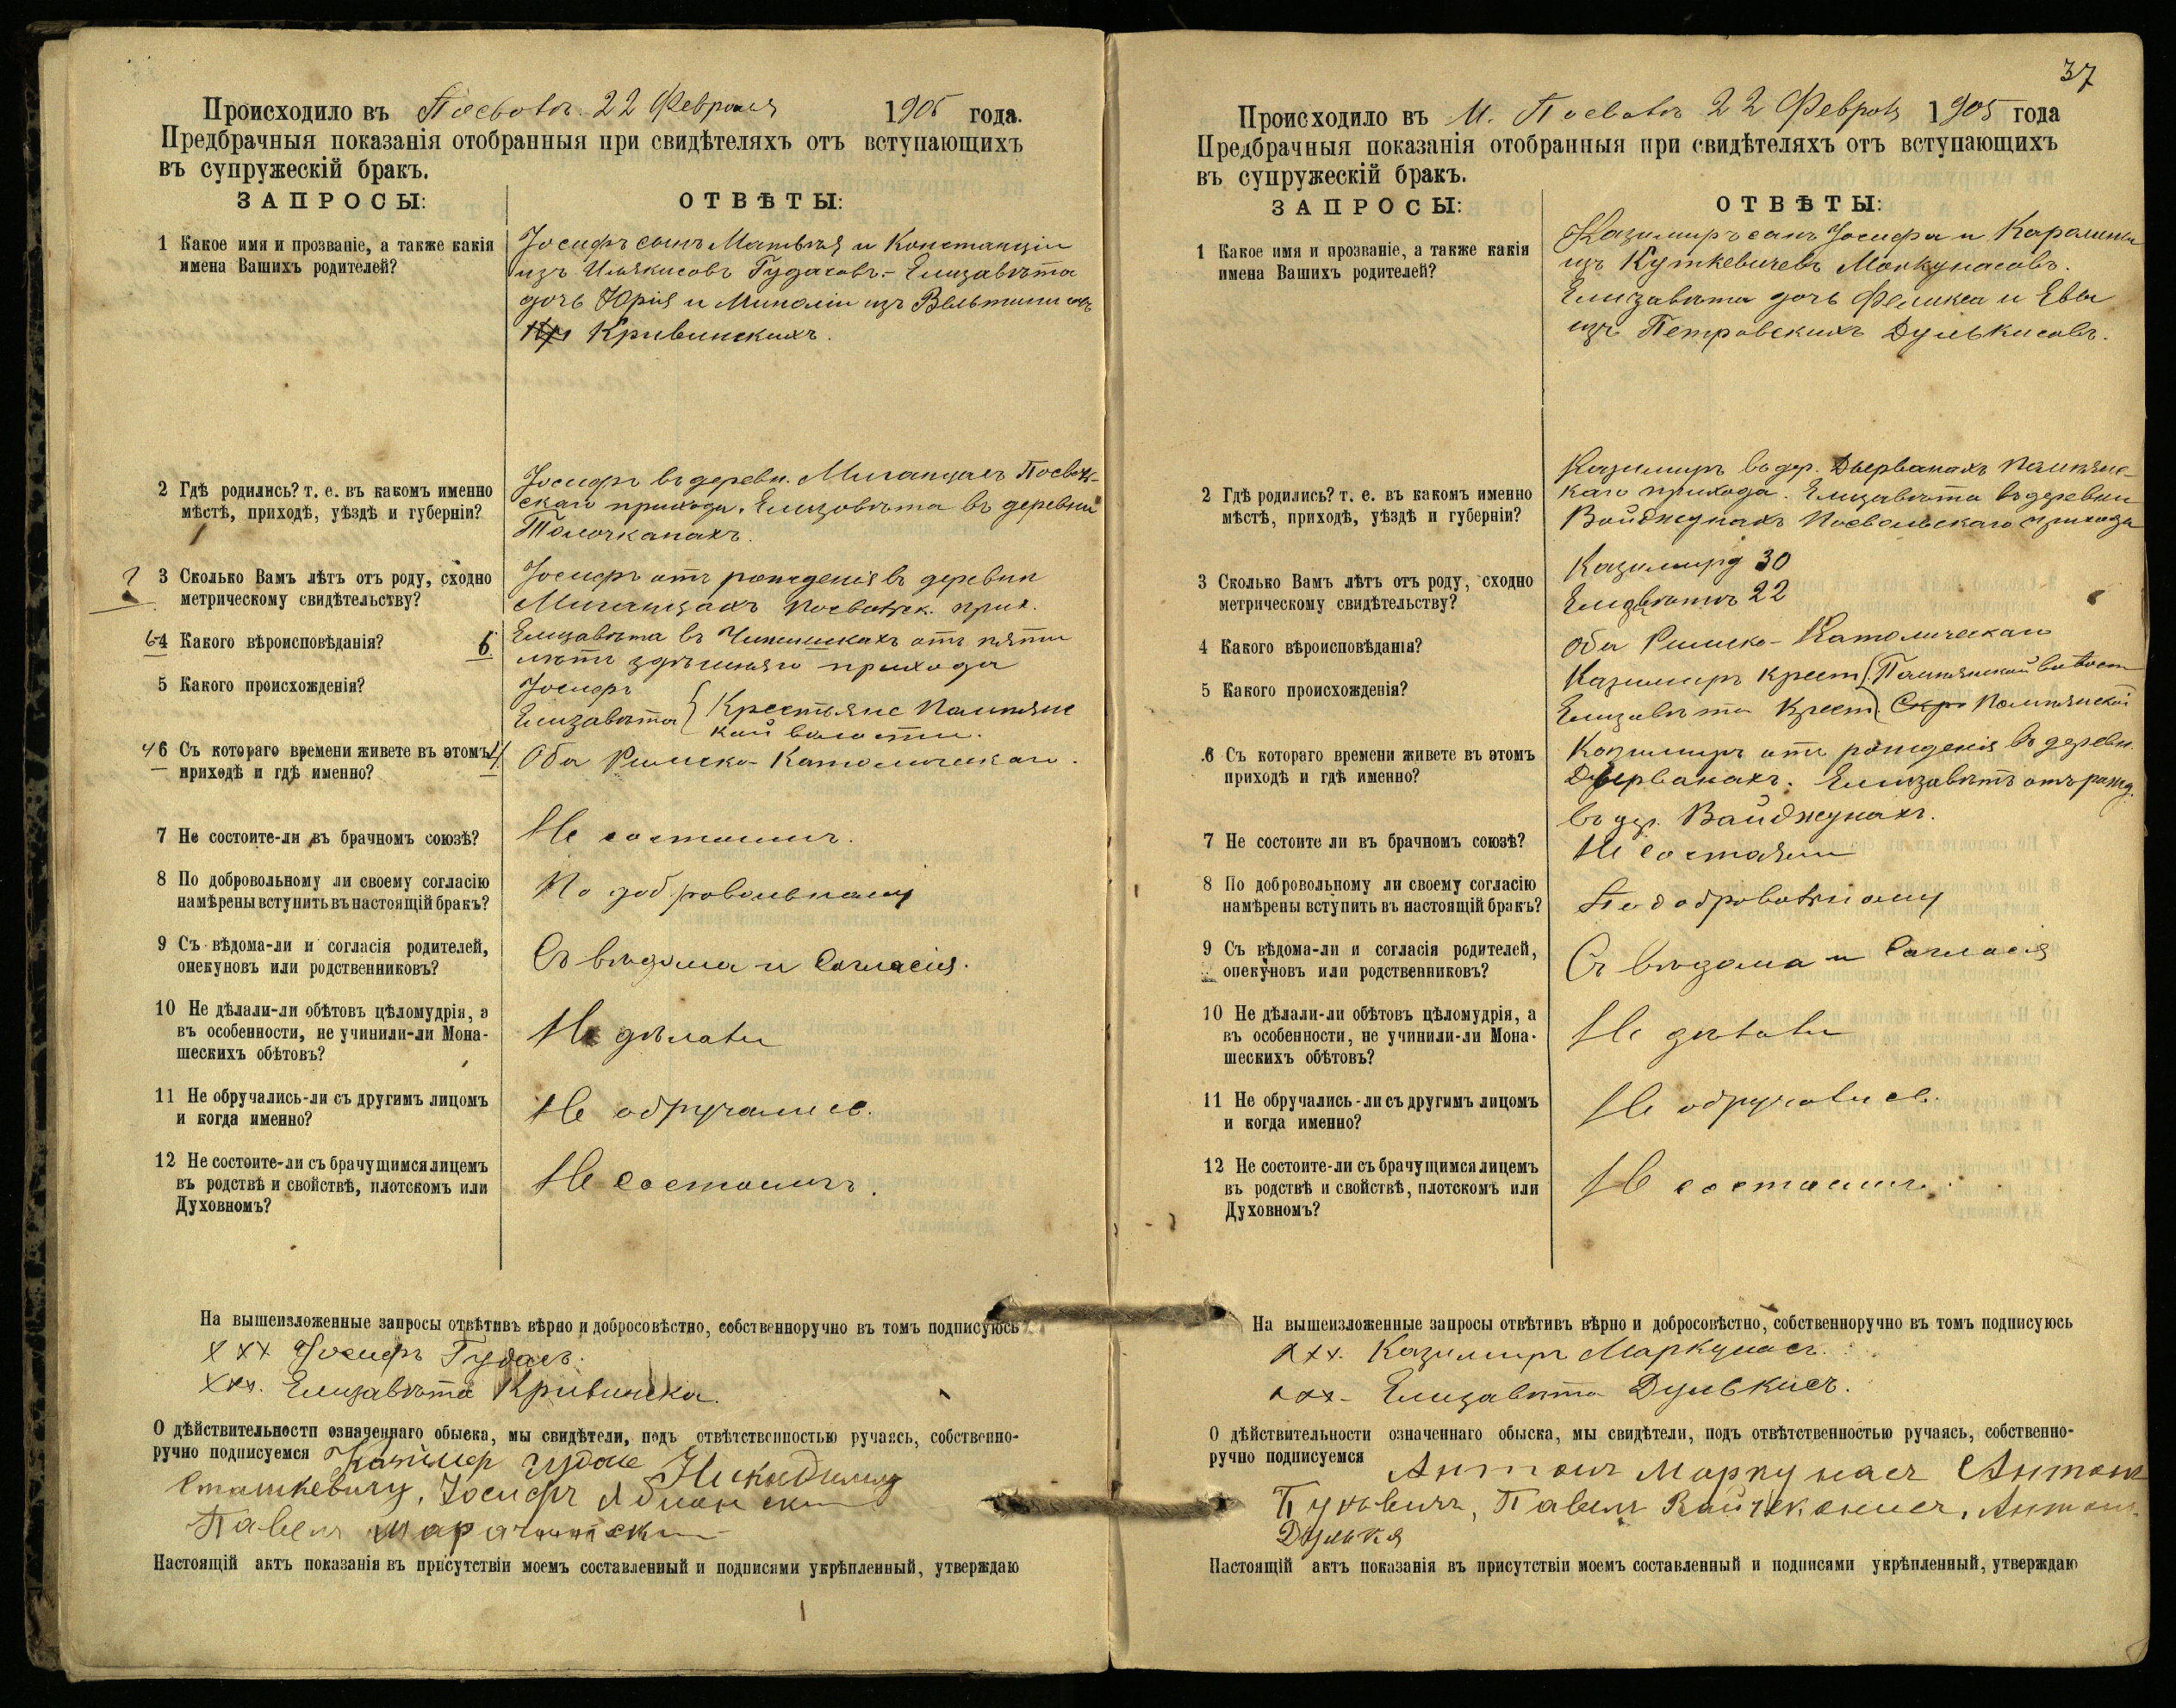 Происходило въ Посволѣ 22 Февраля 1905 года.
Предбрачныя показанія отобранныя при свидѣтеляхъ отъ вступающихъ
въ супружескій бракъ.
ЗАПРОСЫ: ОТВѢТЫ:
1 Какое имя и прозваніе, а также какія
имена Вашихъ родителей?
Іосифъ сынъ Матвѣя и Констанціи
изъ Гудасовъ. - Елизавѣта
дочь Юрія и изъ
Кривинскихъ.
2 Гдѣ родились? т. е. въ какомъ именно
мѣстѣ, приходѣ, уѣздѣ и губерніи?
Іосифъ въ деревн. Посволь-
скаго прихода. Елизовѣта въ деревни
Толочканахъ.
3 Сколько Вамъ лѣтъ отъ роду, сходно
метрическому свидѣтельству?
Іосифъ отъ рожденія въ деревни
Посвольск. прих.
64 Какого вѣроисповѣданія? 6
Елизавѣта въ отъ пяти
лѣтъ здѣшняго прихода
5 Какого происхожденія?
Іосифъ
Елизавѣта } Крестьяне Помпянс
кой волости.
46 Съ котораго времени живете въ этомъ 4
приходѣ и гдѣ именно?
Оба Римско-Католическаго.
7 Не состоите-ли въ брачномъ союзѣ?
Не состоимъ.
8 По добровольному ли своему согласію
намѣрены вступить въ настоящій бракъ?
По добровольному
9 Съ вѣдома-ли и согласія родителей,
опекуновъ или родственниковъ?
Съ вѣдома и Согласія.
10 Не дѣлали-ли обѣтовъ цѣломудрія, а
въ особенности, не учинили-ли Мона-
шескихъ обѣтовъ?
Не дѣлали
11 Не обручались-ли съ другимъ лицомъ
и когда именно?
Не обручались.
12 Не состоите-ли съ брачущимся лицемъ
въ родствѣ и свойствѣ, плотскомъ или
Духовномъ?
Не состоимъ.
На вышеизложенные запросы отвѣтивъ вѣрно и добросовѣстно, собственноручно въ томъ подписуюсь
ххх Іосифъ Гудасъ.
ххх. Елизавѣта Кривинска.
О дѣйствительности означеннаго обыска, мы свидѣтели, подъ отвѣтственностью ручаясь, собственно-
ручно подписуемся
Іосифъ
Павелъ
Настоящій актъ показанія въ присутствіи моемъ составленный и подписями укрѣпленный, утверждаю
37
Происходило въ М. Посволѣ 22 Февраля 1905 года
Предбрачныя показанія отобранныя при свидѣтеляхъ отъ вступающихъ
въ супружескій бракъ.
ЗАПРОСЫ: ОТВѢТЫ:
1 Какое имя и прозваніе, а также какія
имена Вашихъ родителей?
Казимиръ сынъ Іосифа и Каралины
изъ Куткевичевъ Маркунасовъ.
Елизавѣта дочь Феликса и Евы
изъ Петровскихъ Дулькисовъ.
2 Гдѣ родились? т. е. въ какомъ именно
мѣстѣ, приходѣ, уѣздѣ и губерніи?
Казимиръ въ дер. Дверванахъ Помпянс-
каго прихода. Елизавѣта въ деревни
Войджунахъ Посвольскаго прихода
3 Сколько Вамъ лѣтъ отъ роду, сходно
метрическому свидѣтельству?
Казимиру 30
22
4 Какого вѣроисповѣданія?
Оба Римско-Католическаго
5 Какого происхожденія?
Казимиръ крест. Помпянской волост
Елизавѣта Крест. Помпянской
6 Съ котораго времени живете въ этомъ
приходѣ и гдѣ именно?
Казимиръ отъ рожденія въ деревн.
Дверванахъ. Елизавѣтъ отъ рожд.
въ дер. Войджунахъ.
7 Не состоите ли въ брачномъ союзѣ?
Не состояли
8 По добровольному ли своему согласію
намѣрены вступить въ настоящій бракъ?
По добровольному
9 Съ вѣдома-ли и согласія родителей,
опекуновъ или родственниковъ?
Съ вѣдома и Согласія
10 Не дѣлали-ли обѣтовъ цѣломудрія, а
въ особенности, не учинили-ли Мона-
шескихъ обѣтовъ?
Не дѣлали
11 Не обручались-ли съ другимъ лицомъ
и когда именно?
Не обручались.
12 Не состоите-ли съ брачущимся лицемъ
въ родствѣ и свойствѣ, плотскомъ или
Духовномъ?
Не состоимъ.
На вышеизложенные запросы отвѣтивъ вѣрно и добросовѣстно, собственноручно въ томъ подписуюсь
ххх. Казимиръ Маркунасъ.
ххх- Елизавѣта Дулькисъ.
О дѣйствительности означеннаго обыска, мы свидѣтели, подъ отвѣтственностью ручаясь, собственно-
ручно подписуемся Антонъ Маркунасъ Антонъ
Павелъ Антонъ
Дулькя
Настоящій актъ показанія въ присутствіи моемъ составленный и подписями укрѣпленный, утверждаю